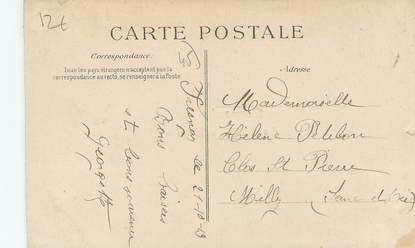 12€
CARTE POSTALE
Correspondance
Tous les pays étrangers n'acceptent pas la
correspondance au recto, se renseigner à la Poste
Adresse
le 21-10-
Bons baisers
et bons souvenirs
Georgette
Mademoiselle
Hélène
Clos St Pierre
Milly